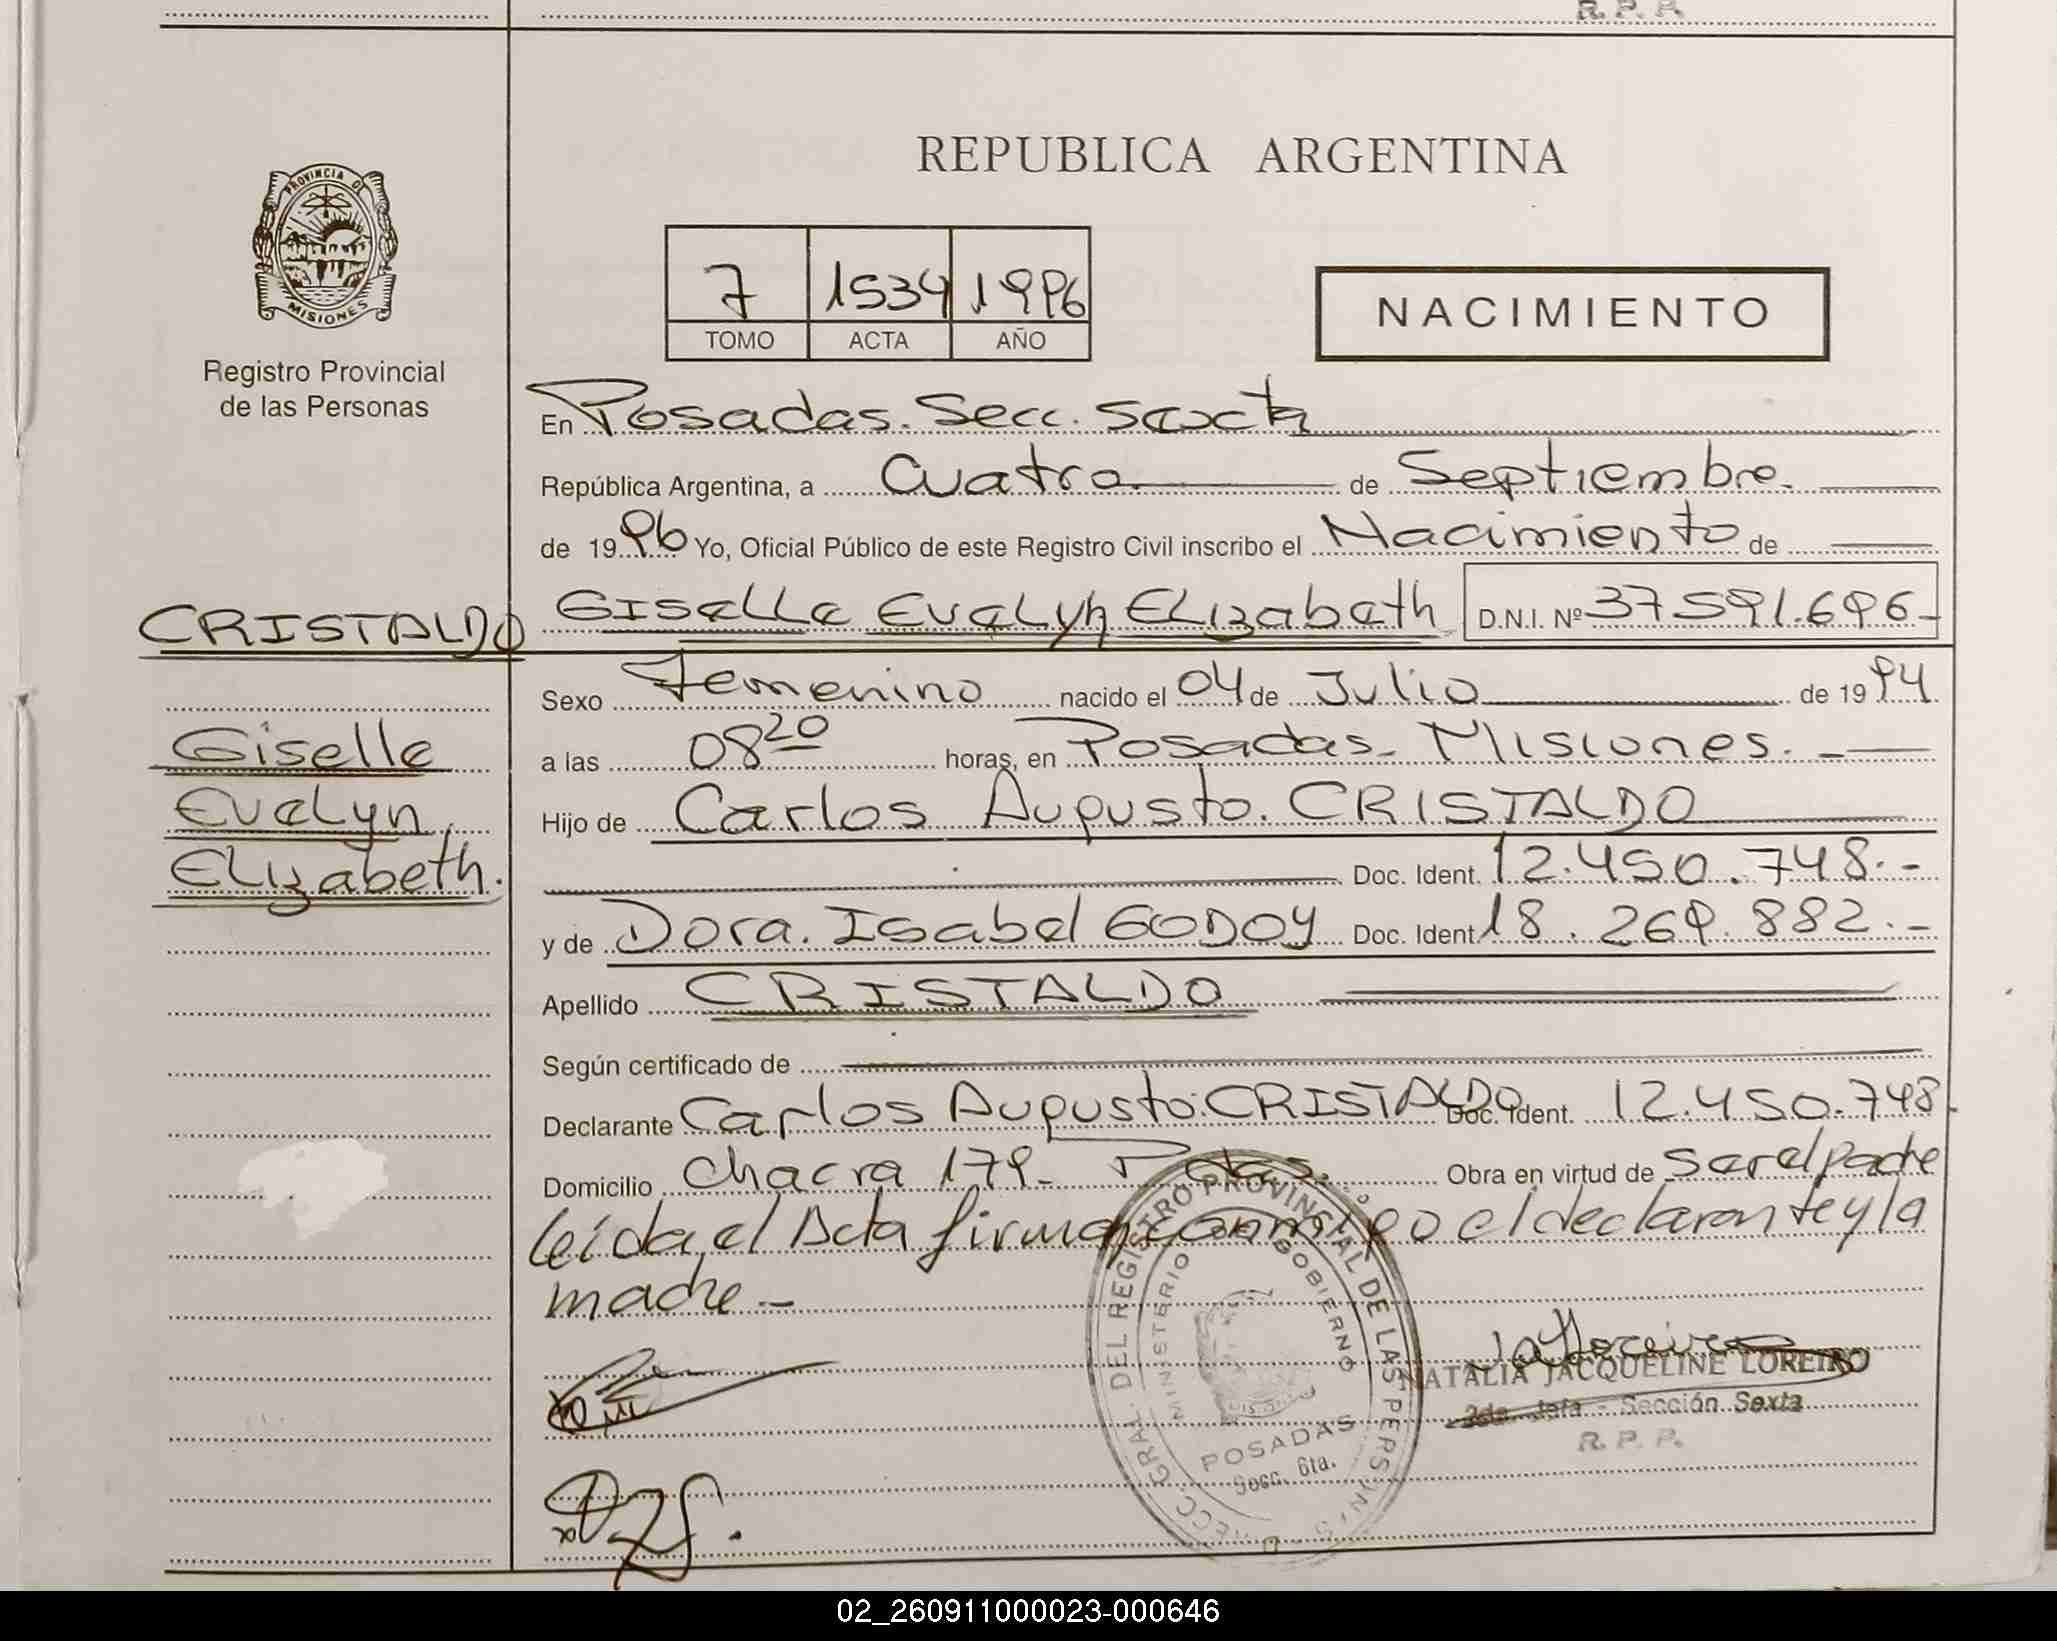 R. P. P.
REPUBLICA ARGENTINA
PROVINCIA DE
MISIONES
7 1534 1996
TOMO ACTA AÑO
NACIMIENTO
Registro Provincial
de las Personas
En Posadas. Secc. Sexta
República Argentina, a Cuatro de Septiembre.
de 1996 Yo, Oficial Público de este Registro Civil inscribo el Nacimiento de
CRISTALDO Giselle Evelyn Elizabeth D.N.I. Nº 37591.696-
Sexo Femenino nacido el 04 de Julio de 1994
Giselle a las 08 20 horas, en Posadas- Misiones.-
Evelyn Hijo de Carlos Augusto. CRISTALDO
Elizabeth. Doc. Ident. 12.450.748.-
y de Dora. Isabel GODOY Doc. Ident 18.269.882.-
Apellido CRISTALDO
Según certificado de
Declarante Carlos Augusto. CRISTALDO Doc. Ident. 12.450.748.
Domicilio Chacra 179- Pdas. Obra en virtud de ser el padre
leída el Acta firman conmigo el declarante y la
madre-
DIRECC. GRAL. DEL REGISTRO PROVINCIAL DE LAS PERSONAS
MINISTERIO DE GOBIERNO
MISIONES
POSADAS
Secc. 6ta.
NATALIA JACQUELINE LOREIRO
2da. Jefa - Sección Sexta
R. P. P.
02_260911000023-000646